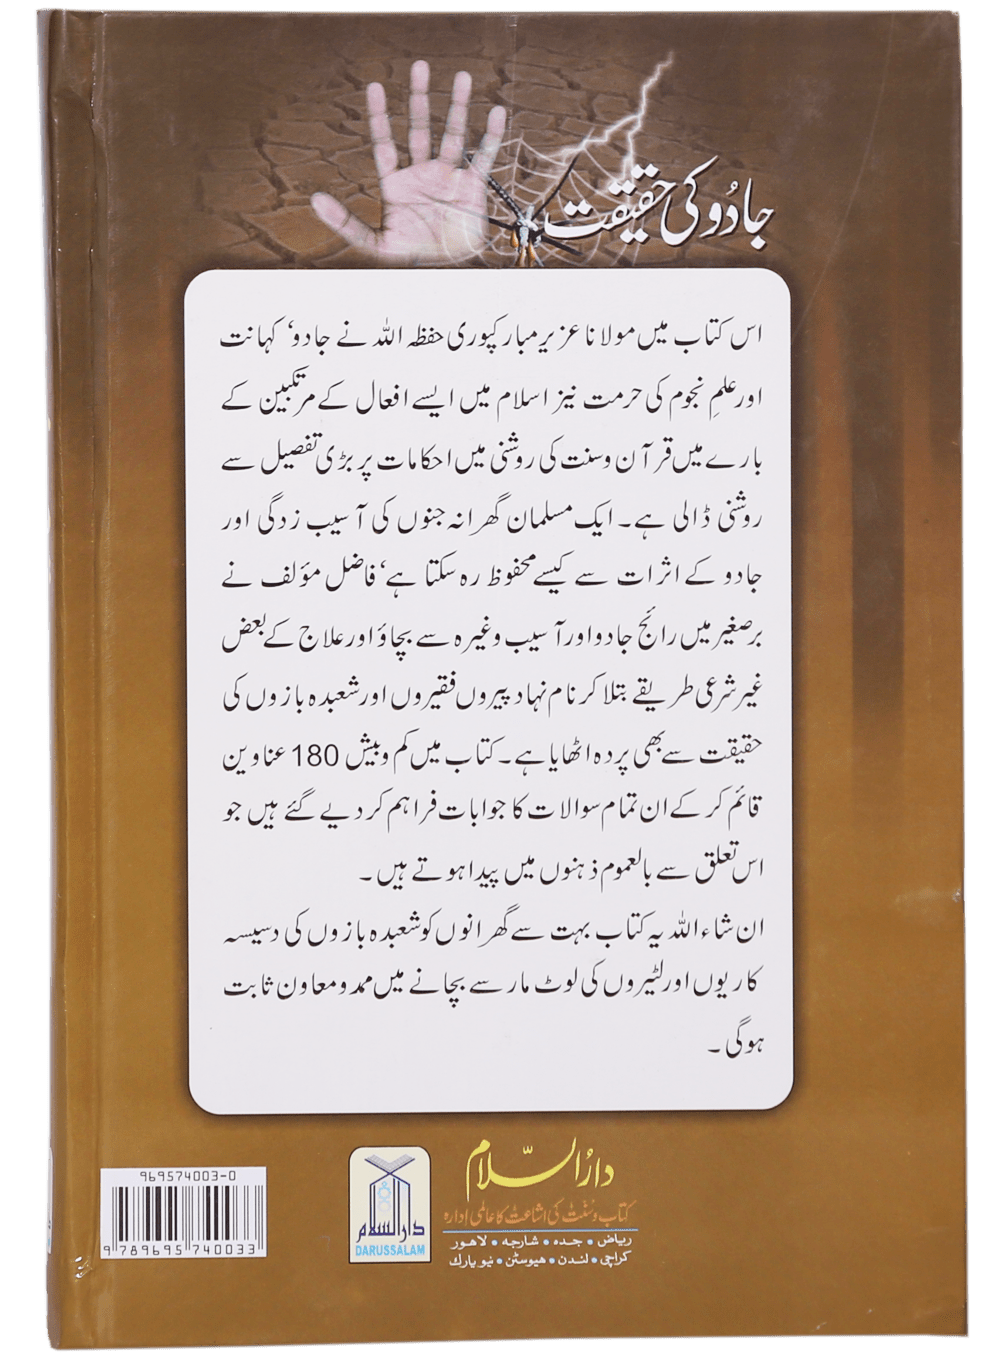 جادُو کی حقیقت
اس کتاب میں مولانا عزیر مبارکپوری حفظہ اللہ نے جادو‘ کہانت
اور علمِ نجوم کی حرمت نیز اسلام میں ایسے افعال کے مرتکبین کے
بارے میں قرآن وسنت کی روشنی میں احکامات پر بڑی تفصیل سے
روشنی ڈالی ہے۔ ایک مسلمان گھرانہ جنوں کی آسیب زدگی اور
جادو کے اثرات سے کیسے محفوظ رہ سکتا ہے‘ فاضل مؤلف نے
برصغیر میں رائج جادو اور آسیب وغیرہ سے بچاؤ اور علاج کے بعض
غیر شرعی طریقے بتلا کر نام نہاد پیروں فقیروں اور شعبدہ بازوں کی
حقیقت سے بھی پردہ اٹھایا ہے۔ کتاب میں کم وبیش 180 عناوین
قائم کر کے ان تمام سوالات کا جوابات فراہم کر دیے گئے ہیں جو
اس تعلق سے بالعموم ذہنوں میں پیدا ہوتے ہیں۔
ان شاء اللہ یہ کتاب بہت سے گھرانوں کو شعبدہ بازوں کی دسیسہ
کاریوں اور لٹیروں کی لوٹ مار سے بچانے میں ممد ومعاون ثابت
ہوگی۔
دارُالسّلام
کتاب و سنت کی اشاعت کا عالمی ادارہ
ریاض • جدہ • شارجہ • لاهور
کراچی • لندن • هیوسٹن • نیو یارک
دارالسلام
DARUSSALAM
969574003-0
9 789695 740033